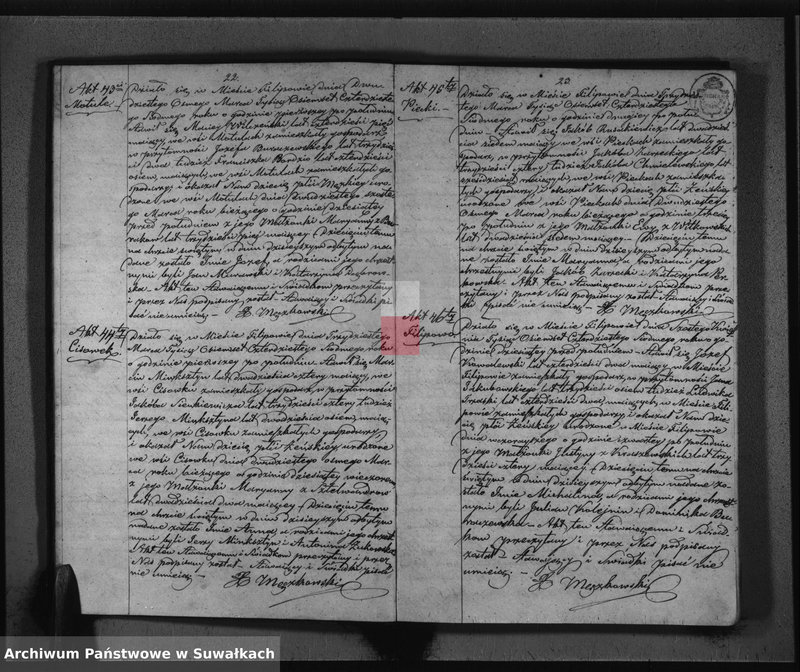 22.
Akt 43ci
Motule.
Działo się w Mieście Filipowie dnia Dwu-
dziestego Osmego Marca Tysiąc Ośmset Czterdzieste-
go Siodmego roku o godzinie pierwszey po południu
Stawił się Maciey lat czterdzieści pięć
maiący, we wsi Motulach zamieszkały gospodarz
w przytomności Jozefa lat trzydzieści
i dwa tudzież Franciszka lat czterdzieści
ośm maiących, we wsi Motulach zamieszkałych go-
spodarzy, i okazał Nam dziecię płci Męzkiey uro-
dzone we wsi Motulach dnia dwudziestego szoste-
go Marca roku bieżącego o godzinie dziesiątey
przed południem z jego Małżonki Maryanny z
lat trzydzieści pięć maiącey. Dziecięciu temu
na chrzcie świętym w dniu dzisieyszym odbytym na-
dane zostało Imie Jozef, a rodzicami jego chrzest-
nymi byli Jan i Katarzyna
Akt ten Stawaiącemu i Świadkom przeczytany
i przez Nas podpisany został, Stawaiący i Świadki pi-
sać nie umieią.
X Męczkowski
Akt 44ty
Cisowek.
Działo się w Mieście Filipowie dnia Trzydziestego
Marca Tysiąc Ośmset Czterdziestego Siodmego roku
o godzinie pierwszey po południu. Stawił się Mar-
cin Minksztyn lat dwadzieścia cztery maiący, we
wsi Cisowku zamieszkały gospodarz, w przytomności
Jakóba Sienkiewicza lat trzydzieści cztery tudzież
Jerzego Minksztyna lat dwadzieścia ośm maią-
cych, we wsi Cisowku zamieszkałych gospodarzy
i okazał Nam dziecię płci Żeńskiey urodzone
we wsi Cisowku dnia dwudziestego osmego Mar-
ca roku bieżącego o godzinie dziesiątey wieczorem
z jego Małżonki Maryanny z
lat dwadzieścia dwa maiącey. Dziecięciu temu
na chrzcie świętym w dniu dzisieyszym odbytym
nadane zostało Imie Anna, a rodzicami jego chrzest-
nymi byli Jerzy Minksztyn i Antonina
Akt ten Stawaiącemu i Świadkom przeczytany i przez
Nas podpisany został. Stawaiący i Świadki pisać
nie umieią.
X Męczkowski
23.
Akt 45ty
Piecki.
Działo się w Mieście Filipowie dnia Trzydzies-
tego Marca Tysiąc Ośmset Czterdziestego
Siodmego roku o godzinie drugiey po połud-
niu. Stawił się Jakób lat dwadzie-
ścia siedem maiący we wsi Pieckach zamieszkały go-
spodarz, w przytomności Jakóba lat
trzydzieści cztery tudzież Jakóba Chmielewskiego lat
sześćdziesiąt maiących, we wsi Pieckach zamieszka-
łych gospodarzy, i okazał Nam dziecię płci Żeńskiey
urodzone we wsi Pieckach dnia dwudziestego
Osmego Marca roku bieżącego o godzinie trzeciey
po południu z jego Małżonki Ewy z Witkowskich
lat dwadzieścia siedem maiącey. Dziecięciu temu
na chrzcie świętym w dniu dzisieyszym odbytym nada-
ne zostało Imie Maryanna, a rodzicami jego
chrzestnymi byli Jakób i Katarzyna
Akt ten Stawaiącemu i Świadkom prze-
czytany i przez Nas podpisany został, Stawaiący i Świad-
ki pisać nie umieią.
X Męczkowski
Akt 46ty
Filipowo
Działo się w Mieście Filipowie dnia Szostego Kwiet-
nia Tysiąc Ośmset Czterdziestego Siodmego roku o go-
dzinie dziesiątey przed południem. Stawił się Jozef
Kowalewski lat czterdzieści dwa maiący w Mieście
Filipowie zamieszkały gospodarz, w przytomności Jana
Jakubowskiego lat trzydzieści ośm tudzież Ludwika
lat czterdzieści dwa maiących, w Mieście Fili-
powie zamieszkałych gospodarzy i okazał Nam dzie-
cię płci Żeńskiey urodzone w Mieście Filipowie
dnia wczorayszego o godzinie czwartey po południu
z jego Małżonki Justyny z lat trzy-
dzieści cztery maiącey. Dziecięciu temu na chrzcie
świętym w dniu dzisieyszym odbytym nadane zo-
stało Imie Michalina, a rodzicami jego chrzest-
nymi byli i Dominika
Akt ten Stawaiącemu i Świad-
kom przeczytany i przez Nas podpisany
został. Stawaiący i Świadki pisać nie
umieią.
X Męczkowski
Archiwum Państwowe w Suwałkach